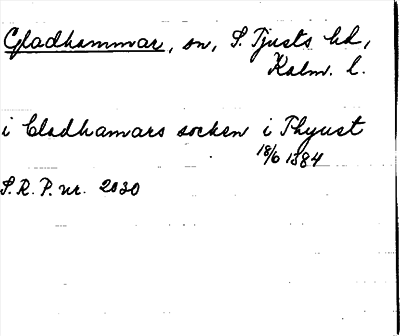 Gladhammar, sn, S. Tjusts hd,
Kalm. l.
i Gladhamars socken i Thyust
18/6 1884
S.R.P. nr. 2030